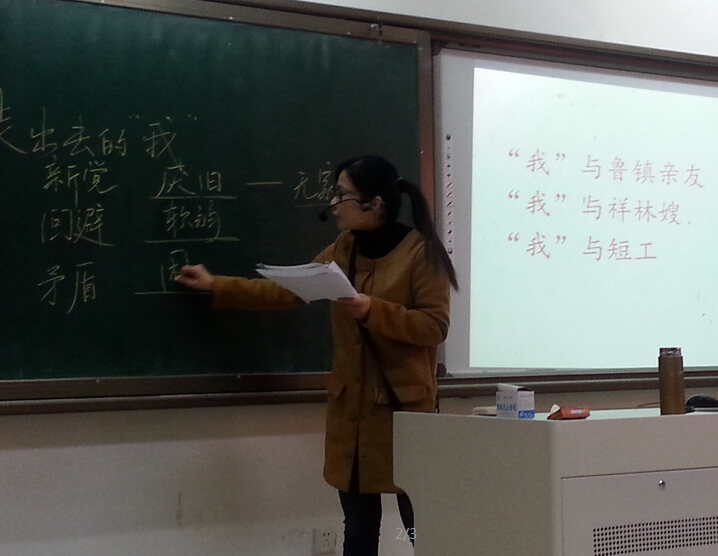 出去的“我”
新党 厌旧 — 无家
回避 软弱
矛盾
“我”与鲁镇亲友
“我”与祥林嫂.
“我”与短工
2/3